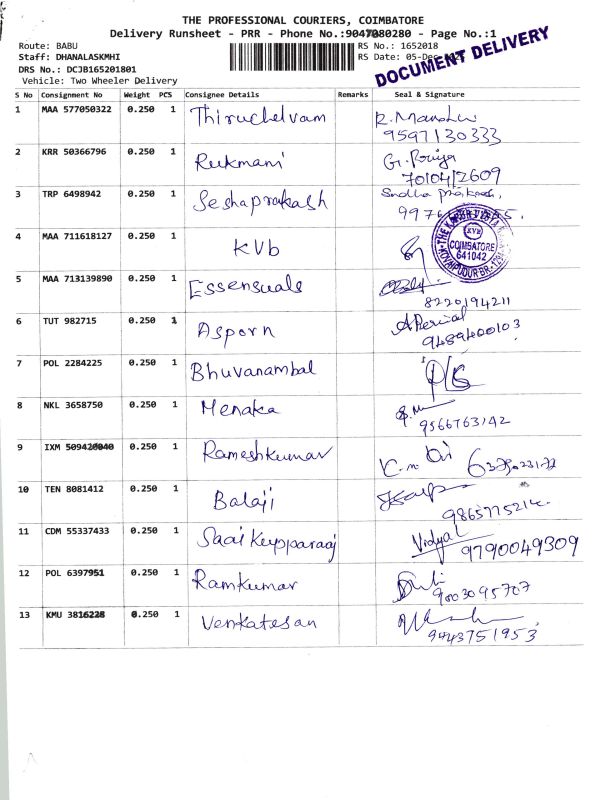 THE PROFESSIONAL COURIERS, COIMBATORE
Delivery Runsheet - PRR - Phone No.:9047080280 - Page No.:1
Route: BABU
RS No.: 1652018
Staff: DHANALASKMHI
RS Date: 05-Dec
DOCUMENT DELIVERY
DRS No.: DCJB165201801
Vehicle: Two Wheeler Delivery
S No Consignment No Weight PCS Consignee Details Remarks Seal & Signature
1 MAA 577050322 0.250 1 Thiruchelvam R. Manohar
9597130333
2 KRR 50366796 0.250 1 Rukmani G. Priya
7010412609
3 TRP 6498942 0.250 1 Seshaprakash Sudha prakash,
4 MAA 711618127 0.250 1 KVb
KVB
COIMBATORE
641042
5 MAA 713139890 0.250 1 Essensuals
8220194211
6 TUT 982715 0.250 1 Asporn
9489400103
7 POL 2284225 0.250 1 Bhuvanambal
8 NKL 3658750 0.250 1 Menaka
9566763142
9 IXM 509420040 0.250 1 Rameshkumar
10 TEN 8081412 0.250 1 Balaji
9865775214
11 CDM 55337433 0.250 1 Saai Kupparaaj Vidyal
9790049309
12 POL 6397951 0.250 1 Ramkumar
9003095707
13 KMU 3816228 0.250 1 Venkatesan
9443751953